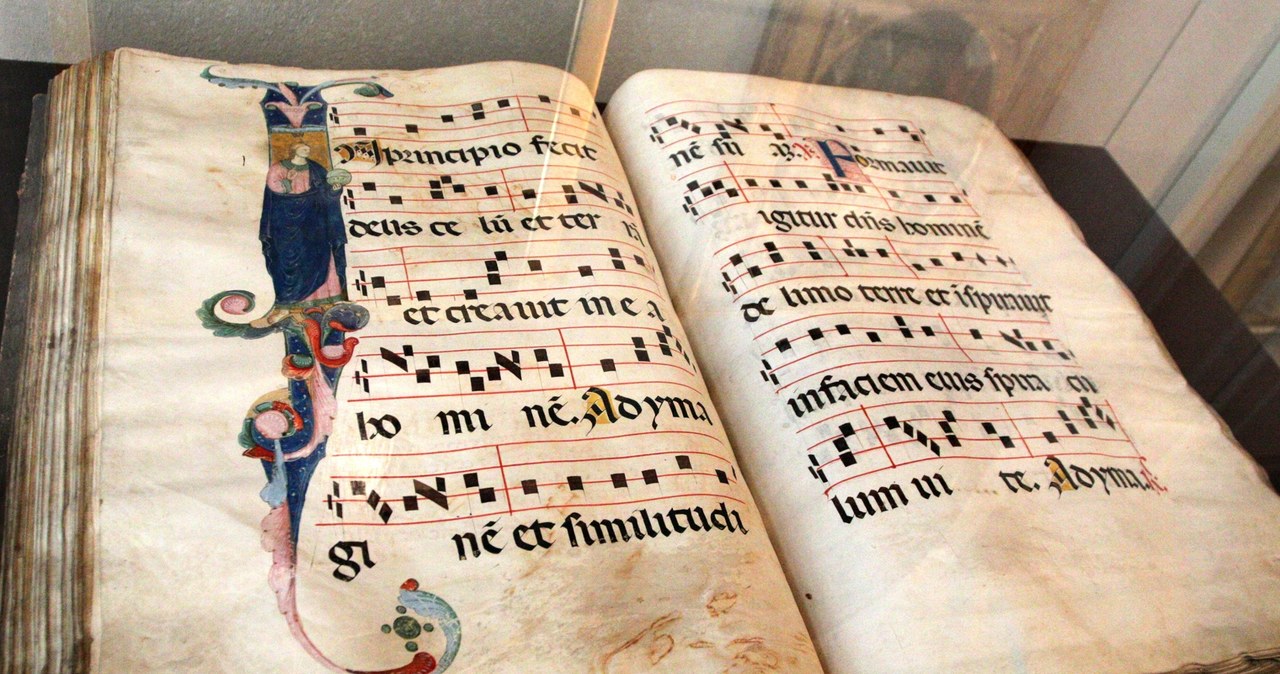 IN principio fecit
deus ce lū et ter rā
et creauit in e a
ho mi nē. Ad yma
gi nē et similitudi
nē su ā. ℣. Formauit
igitur dn̄s hominē
de limo terre et īspirauit
in faciem eius spira cu
lum ui te. Ad yma.